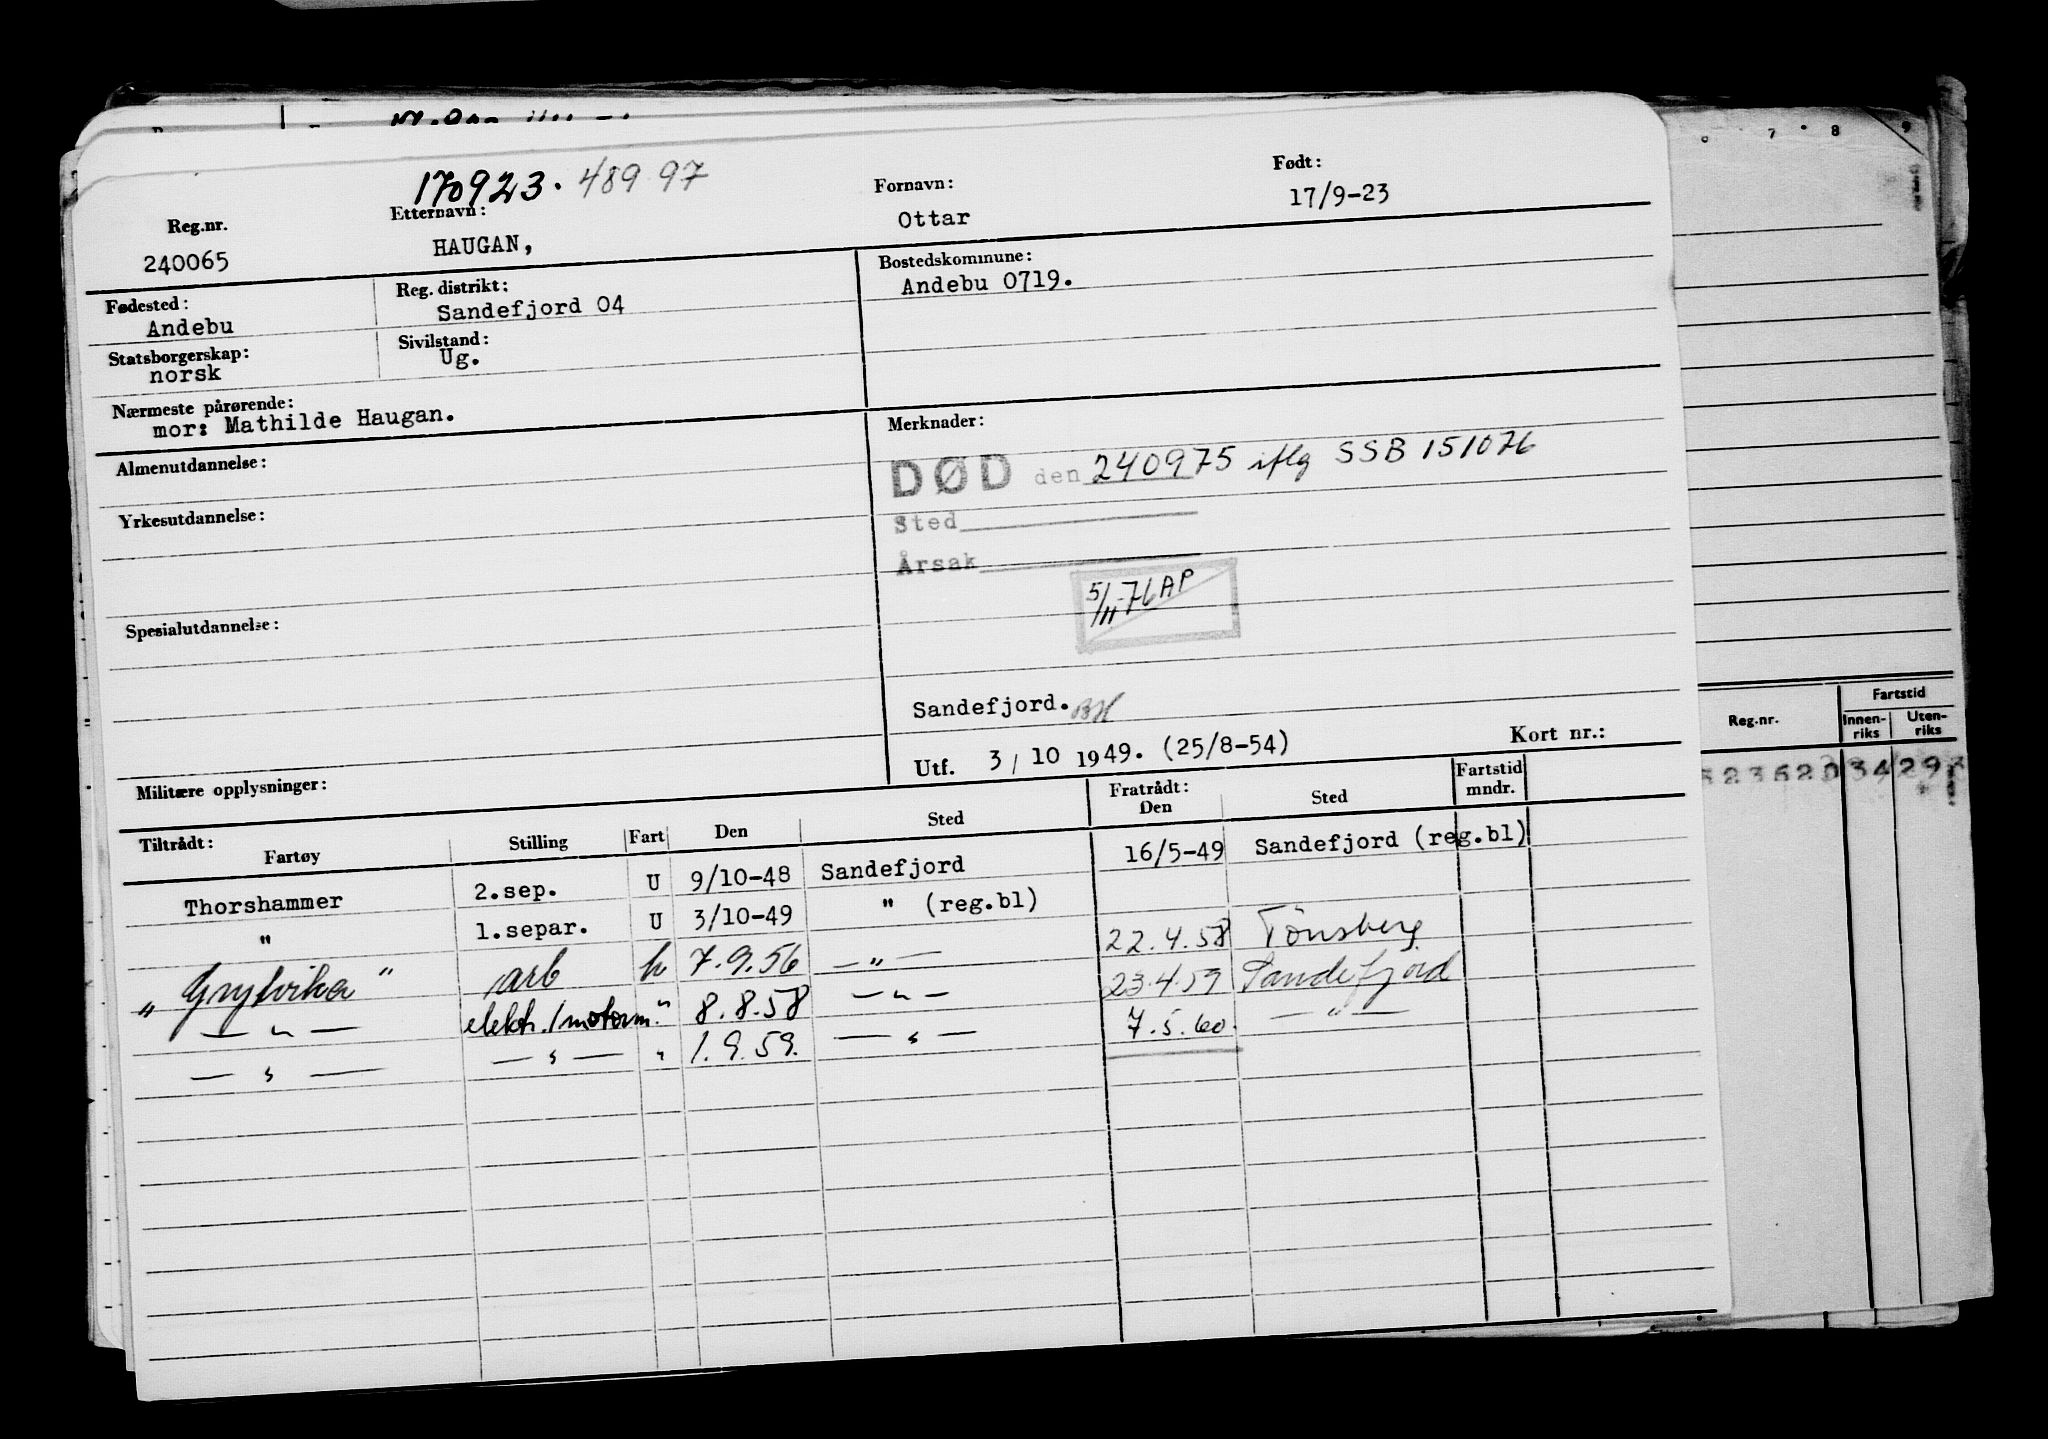 170923. 48997
Reg.nr. Etternavn: Fornavn: Født:
240065 HAUGAN, Ottar 17/9-23
Fødested: Reg. distrikt: Bostedskommune:
Andebu Sandefjord 04 Andebu 0719.
Statsborgerskap: Sivilstand:
norsk Ug.
Nærmeste pårørende:
mor: Mathilde Haugan.
Merknader:
Almenutdannelse:
DØD den 240975 iflg SSB 151076
Yrkesutdannelse:
Sted
Årsak
5/11-76 AP
Spesialutdannelse:
Sandefjord.
Utf. 3/10 1949. (25/8-54) Kort nr.:
Militære opplysninger:
Tiltrådt: Fratrådt: Fartstid
Fartøy Stilling Fart Den Sted Den Sted mndr.
Thorshammer 2.sep. U 9/10-48 Sandefjord 16/5-49 Sandefjord (reg.bl)
" 1.separ. U 3/10-49 " (reg.bl)
" Grytvika " arb h 7.9.56 — " — 22.4.58 Tønsberg
— " — elektr./motorm. " 8.8.58 — " — 23.4.59 Sandefjord
— " — — " — " 1.9.59. — " — 7.5.60. — " —
7 8 9
Reg.nr. Fartstid
Innen-riks Uten-riks
523620 34 29